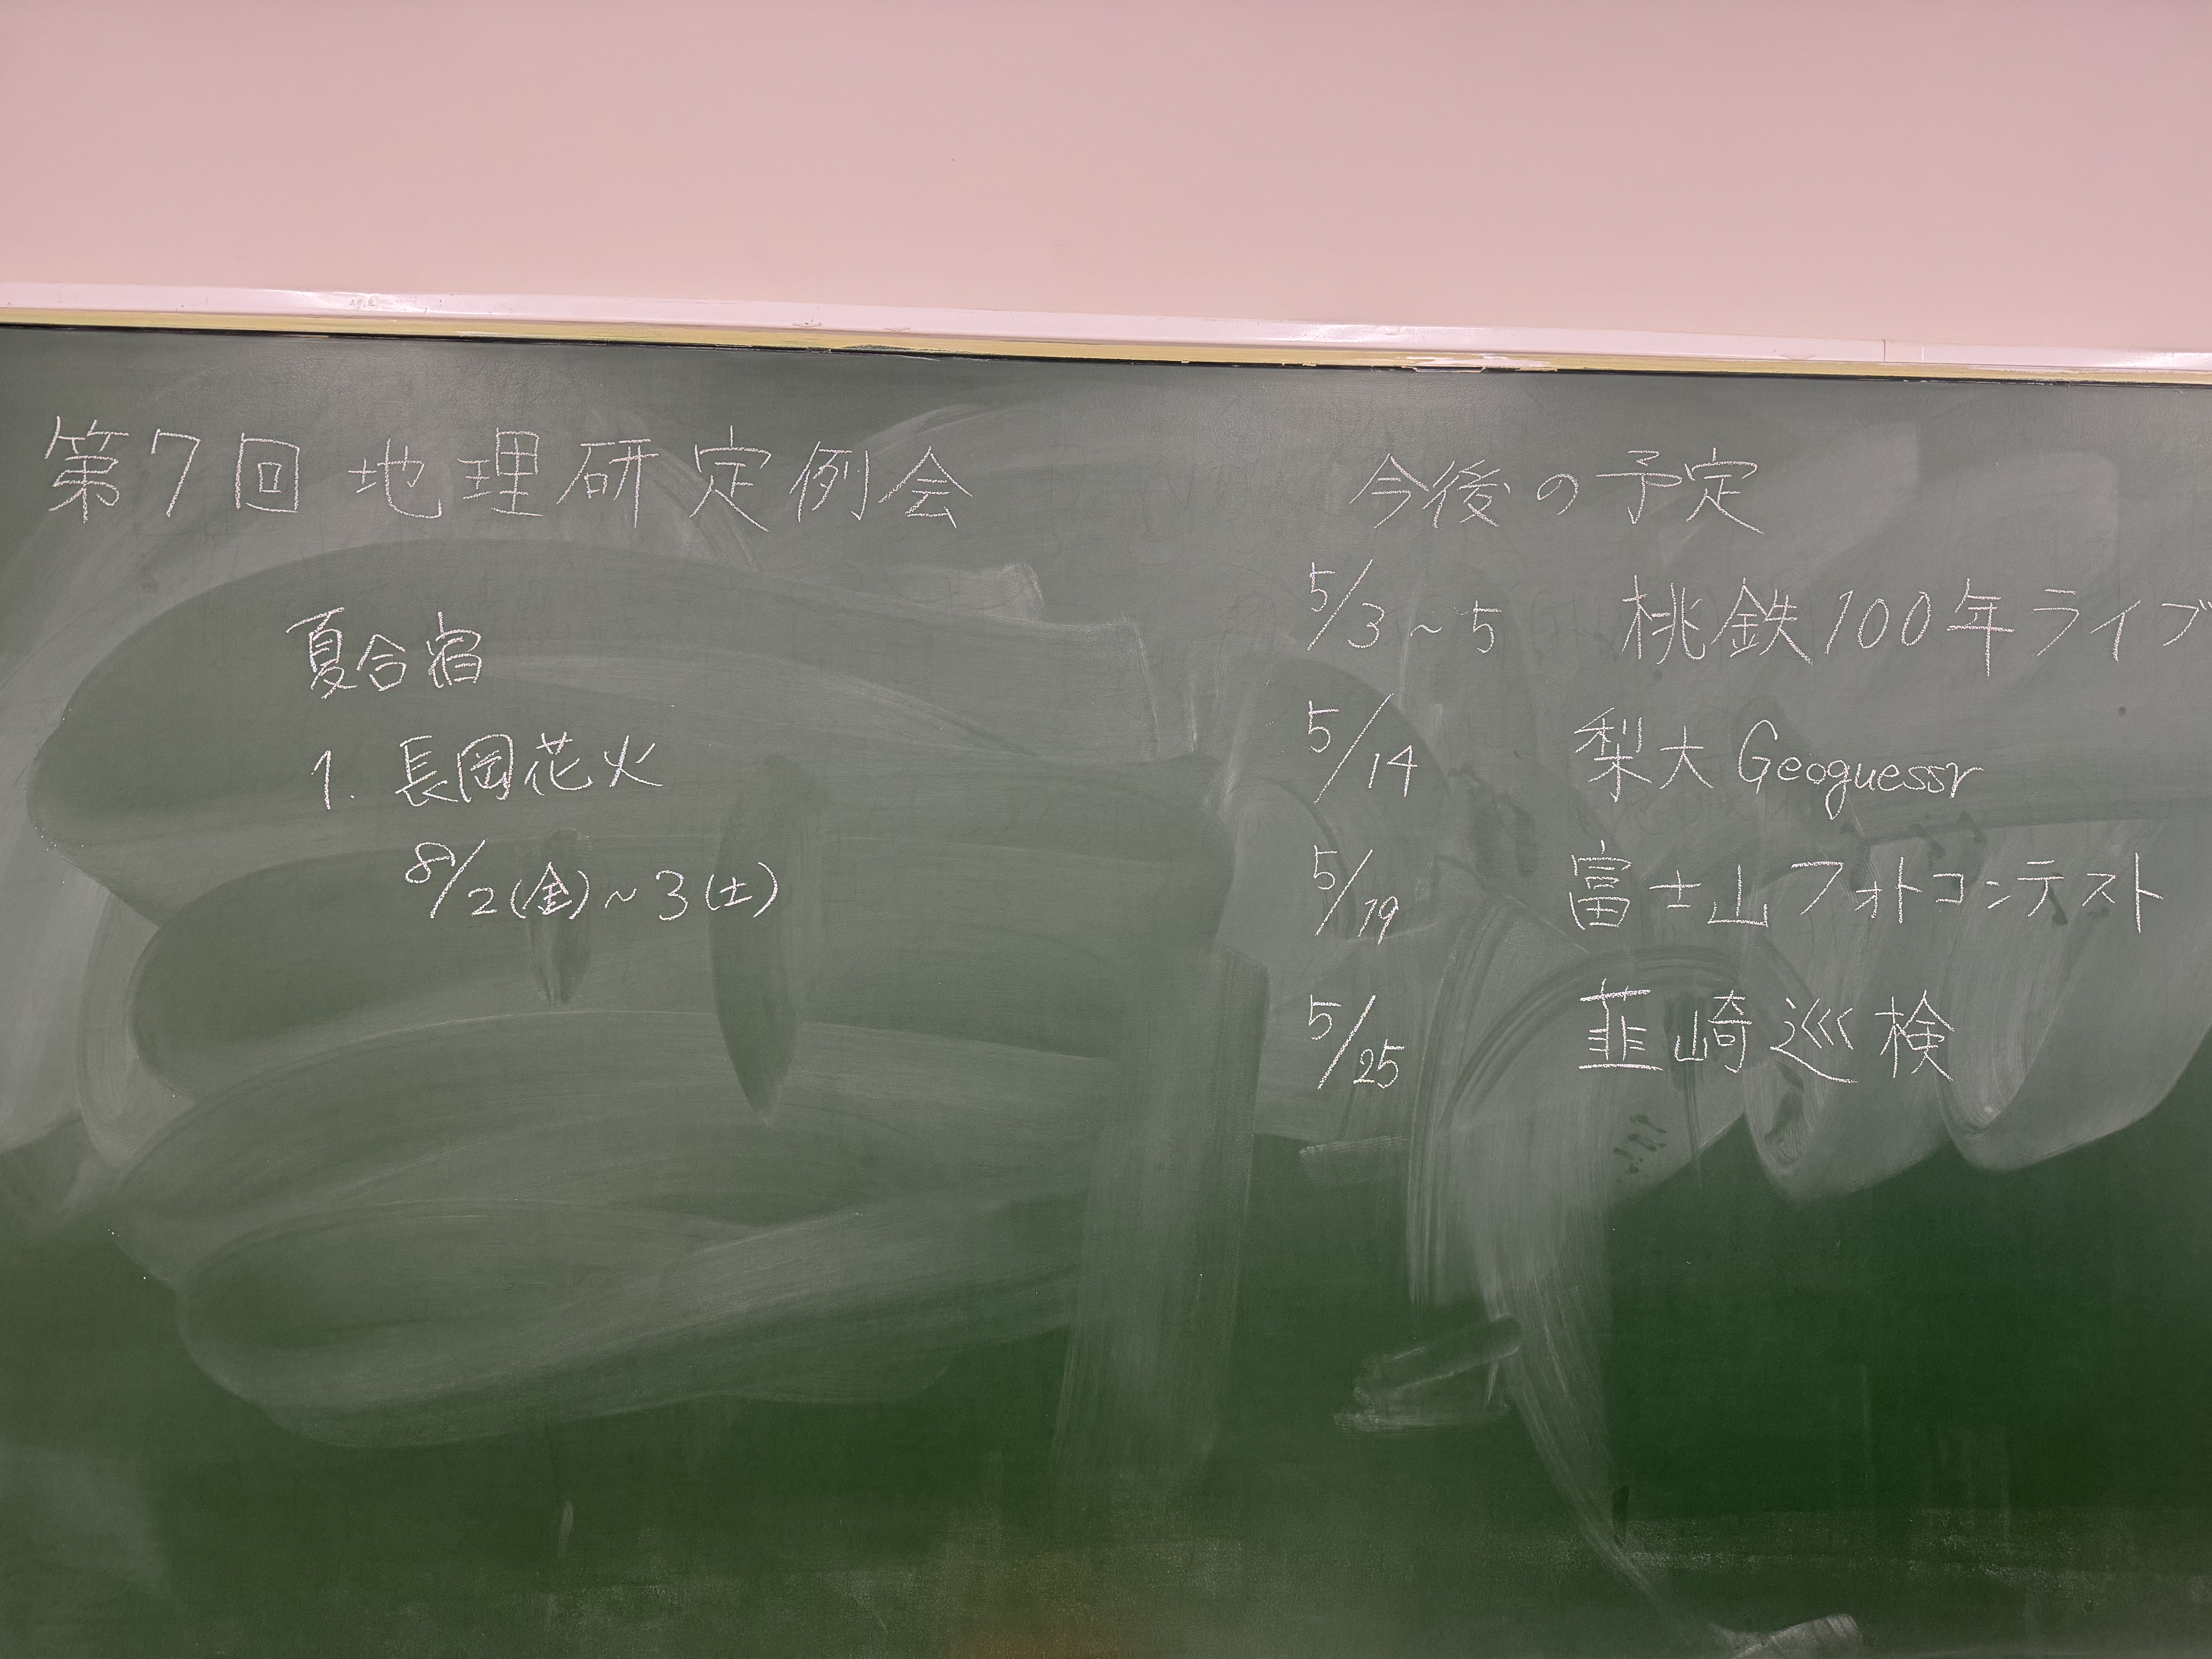 第7回 地理研定例会
夏合宿
1. 長岡花火
8/2(金)~3(土)
今後の予定
5/3~5 桃鉄100年ライブ
5/14 梨大Geoguessr
5/19 富士山フォトコンテスト
5/25 韮崎巡検